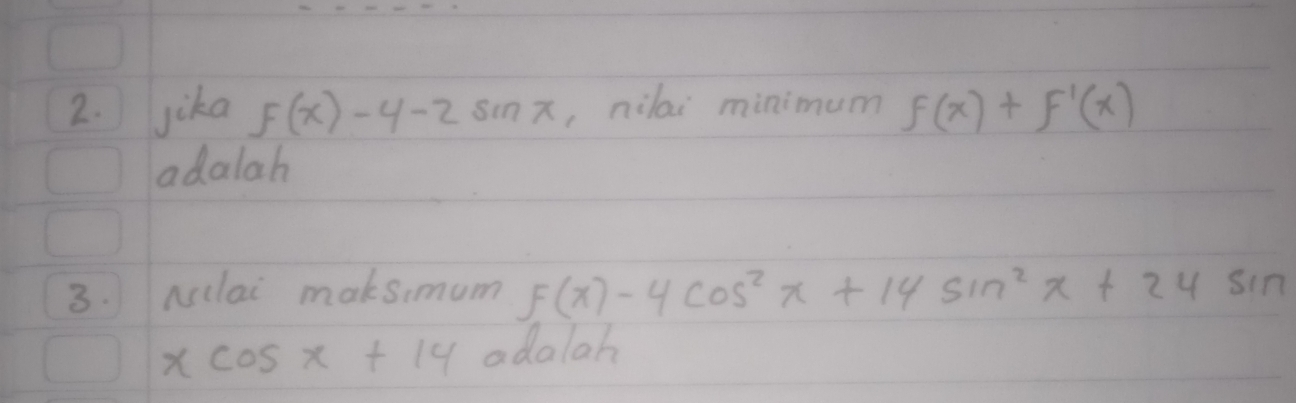 2. jika f(x) - 4 - 2 sin x, nilai minimum f(x) + f'(x)
adalah
3. Nilai maksimum f(x) - 4 cos² x + 14 sin² x + 24 sin
x cos x + 14 adalah